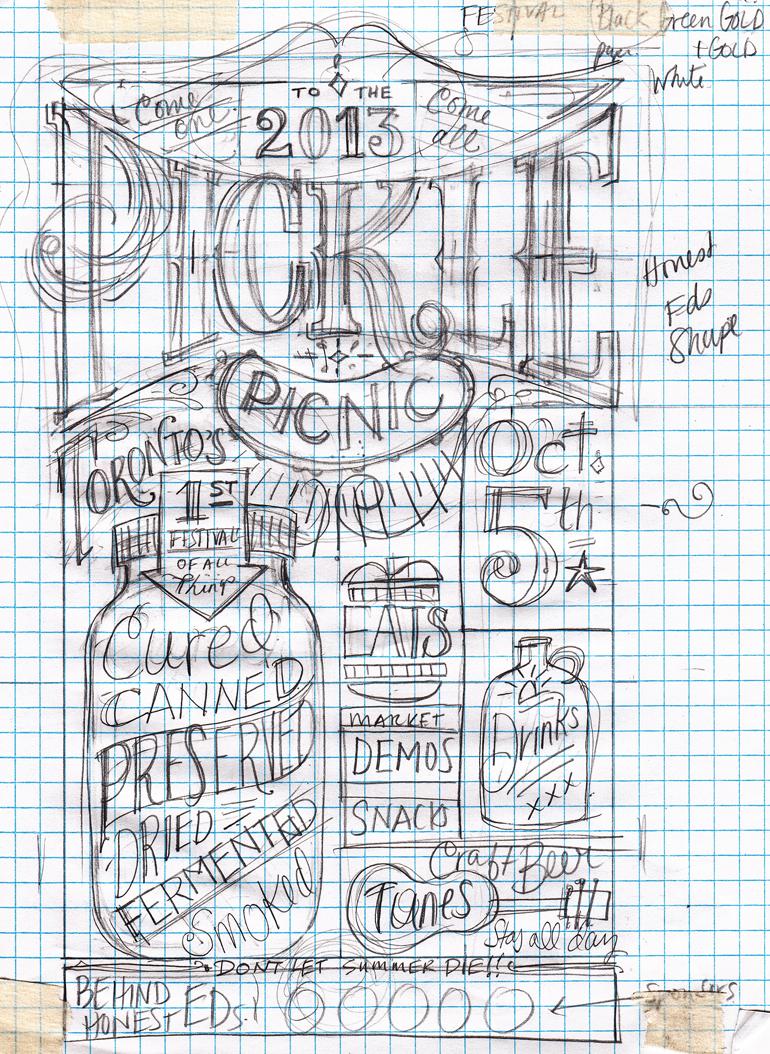 FESTIVAL
Black Green GOLD
paper + GOLD
White
Come one
TO THE
2013
Come all
PICKLE
PICNIC
Honest
Eds
Shape
TORONTO'S
1ST
FESTIVAL
OF ALL
Things
Cured
CANNED
PRESERVED
DRIED
FERMENTED
Smoked
EATS
MARKET
DEMOS
SNACKS
Oct.
5th
Drinks
XXX
Craft Beer
Tunes
Stay all day
DONT LET SUMMER DIE!!
BEHIND
HONEST EDs!
SPONSERS